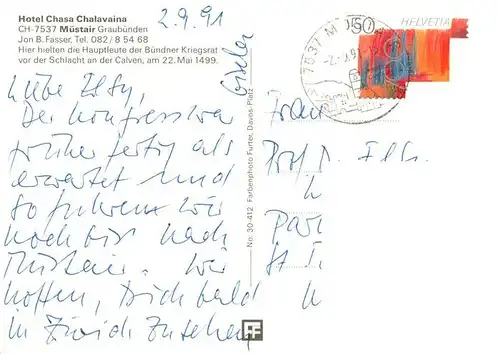 Hotel Chasa Chalavaina
CH-7537 Müstair Graubünden
Jon B. Fasser, Tel. 082/8 54 68
Hier hielten die Hauptleute der Bündner Kriegsrat
vor der Schlacht an der Calven, am 22. Mai 1499.
2.9.91
Liebe Elfy,
Der Kongress war
früher fertig als
erwartet und
so fuhren wir
noch bis nach
Müstair. Wir
hoffen, Dich bald
in Zürich zu sehen
Gisela
No: 30-412 Farbenphoto Furter, Davos-Platz
FF
HELVETIA
50
7537 MÜSTAIR
-2.-9.91
Frau
Prof. D.
St.